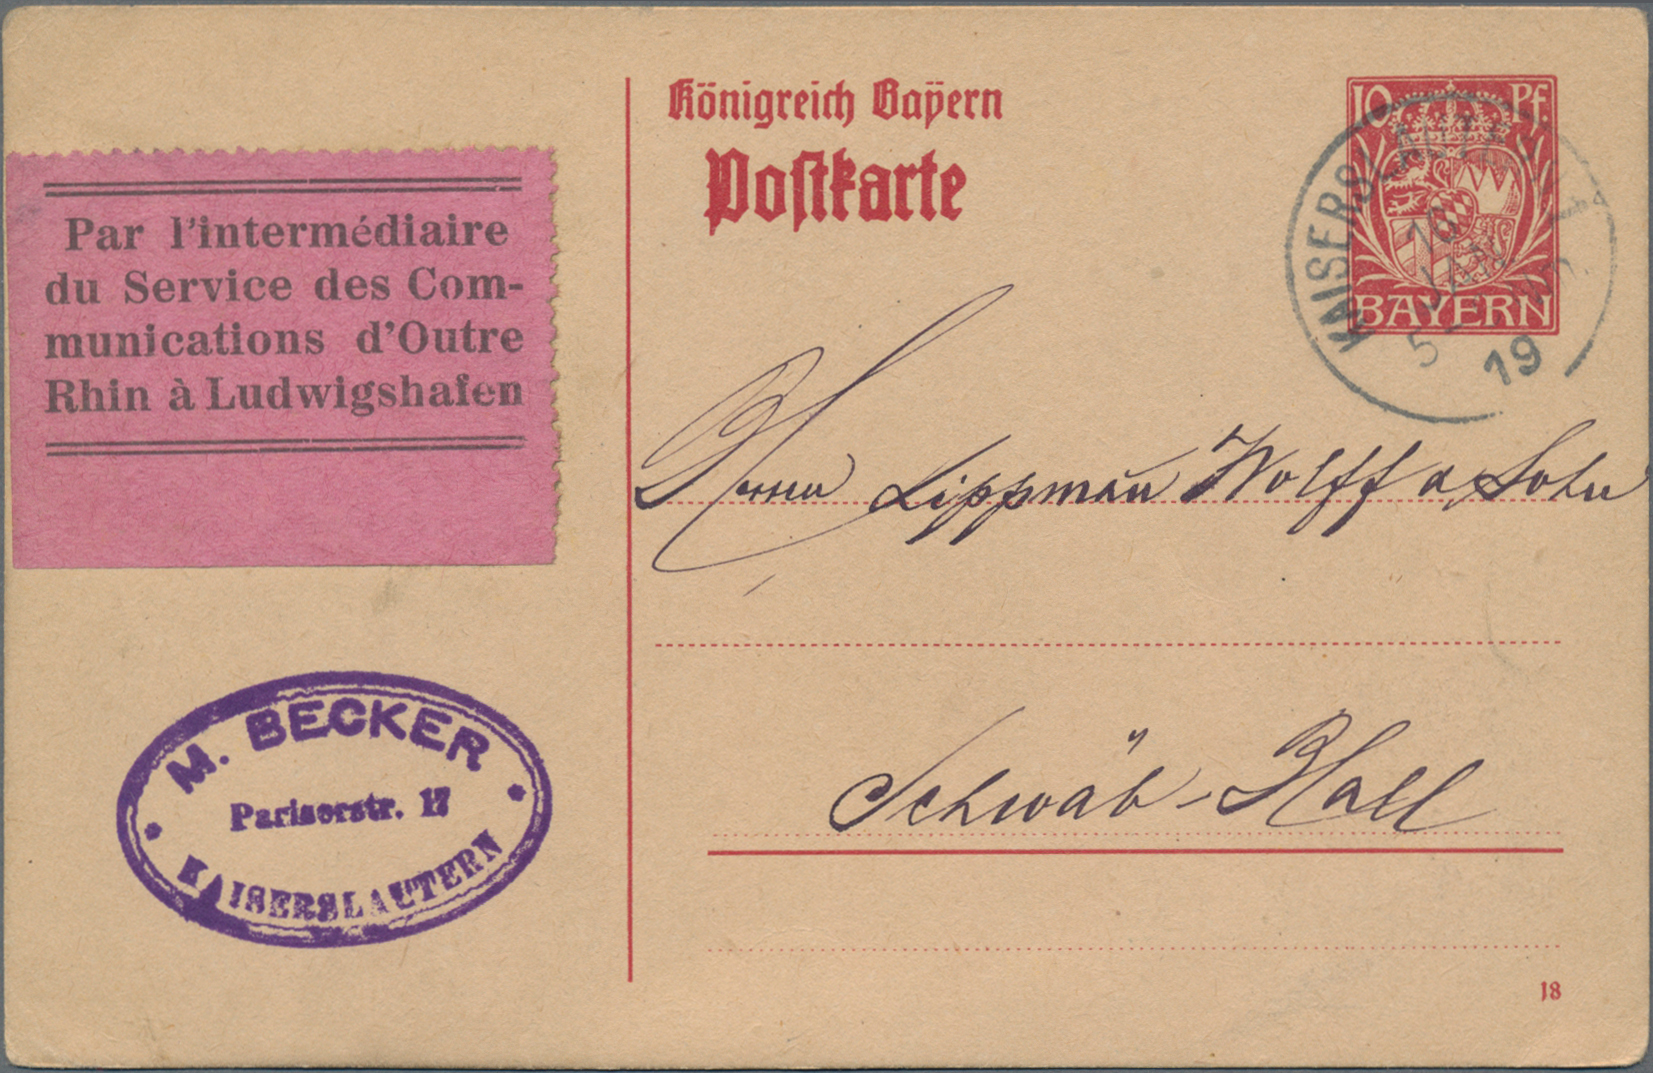 Königreich Bayern
Postkarte
10 Pf.
BAYERN
KAISERSLAUTERN
10
JAN
5
19
Par l'intermédiaire
du Service des Com-
munications d'Outre
Rhin à Ludwigshafen
Herren Lippman̄ Wolff & Sohn
Schwäb-Hall
M. BECKER
Pariserstr. 17
KAISERSLAUTERN
18